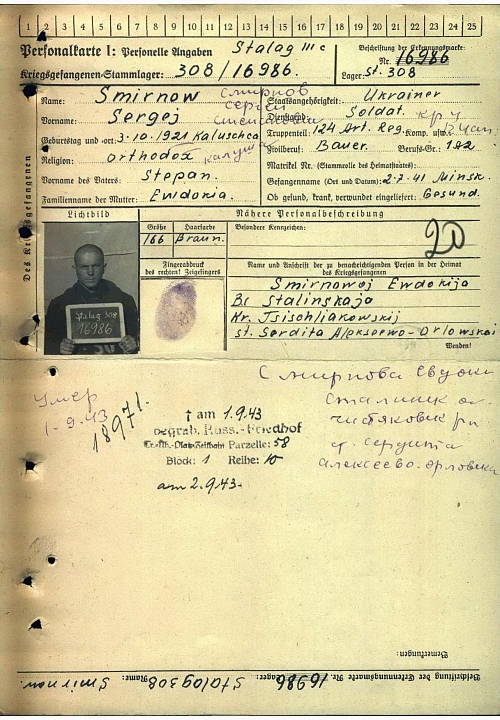 1 2 3 4 5 6 7 8 9 10 11 12 13 14 15 16 17 18 19 20 21 22 23 24 25
Personalkarte I: Personelle Angaben Stalag III c
Kriegsgefangenen-Stammlager: 308/16986.
Beschriftung der Erkennungsmarke:
Nr. 16986
Lager: St. 308
Des Kriegsgefangenen
Name: Smirnow Смирнов
Vorname: Sergej Сергей
Geburtstag und -ort: 3.10.1921 Kaluschca
Religion: orthodox Калуга
Vorname des Vaters: Stepan.
Familienname der Mutter: Ewdokia.
Staatsangehörigkeit: Ukrainer
Dienstgrad: Soldat.
Truppenteil: 124 Art. Reg. Komp. usw.:
Zivilberuf: Bauer. Berufs-Gr.: 1a2
Matrikel Nr. (Stammrolle des Heimatstaates):
Gefangennahme (Ort und Datum): 2.7.41 Minsk.
Ob gesund, krank, verwundet eingeliefert: Gesund.
Lichtbild
Nähere Personalbeschreibung
Größe Haarfarbe Besondere Kennzeichen:
166 Braun.
20
Fingerabdruck
des rechten! Zeigefingers
Stalag 308
16986
Name und Anschrift der zu benachrichtigenden Person in der Heimat
des Kriegsgefangenen
Smirnowoj Ewdokija
Stalinskaja
Kr. Tsischliakowskij
st. Sordita Aleksoewo-Orlowskoi
Wenden!
Смирнова Евдоки
Умер
1-9.43
18971.
† am 1.9.43
Begrab. Russ.-Friedhof
Parzelle: 58
Block: 1 Reihe: 10
am 2.9.43.
Сталинск
ст. Сердита
Алексеево-Орловка
Bemerkungen:
Beschriftung der Erkennungsmarke Nr. 16986 Lager: Stalag 308 Name: Smirnow.